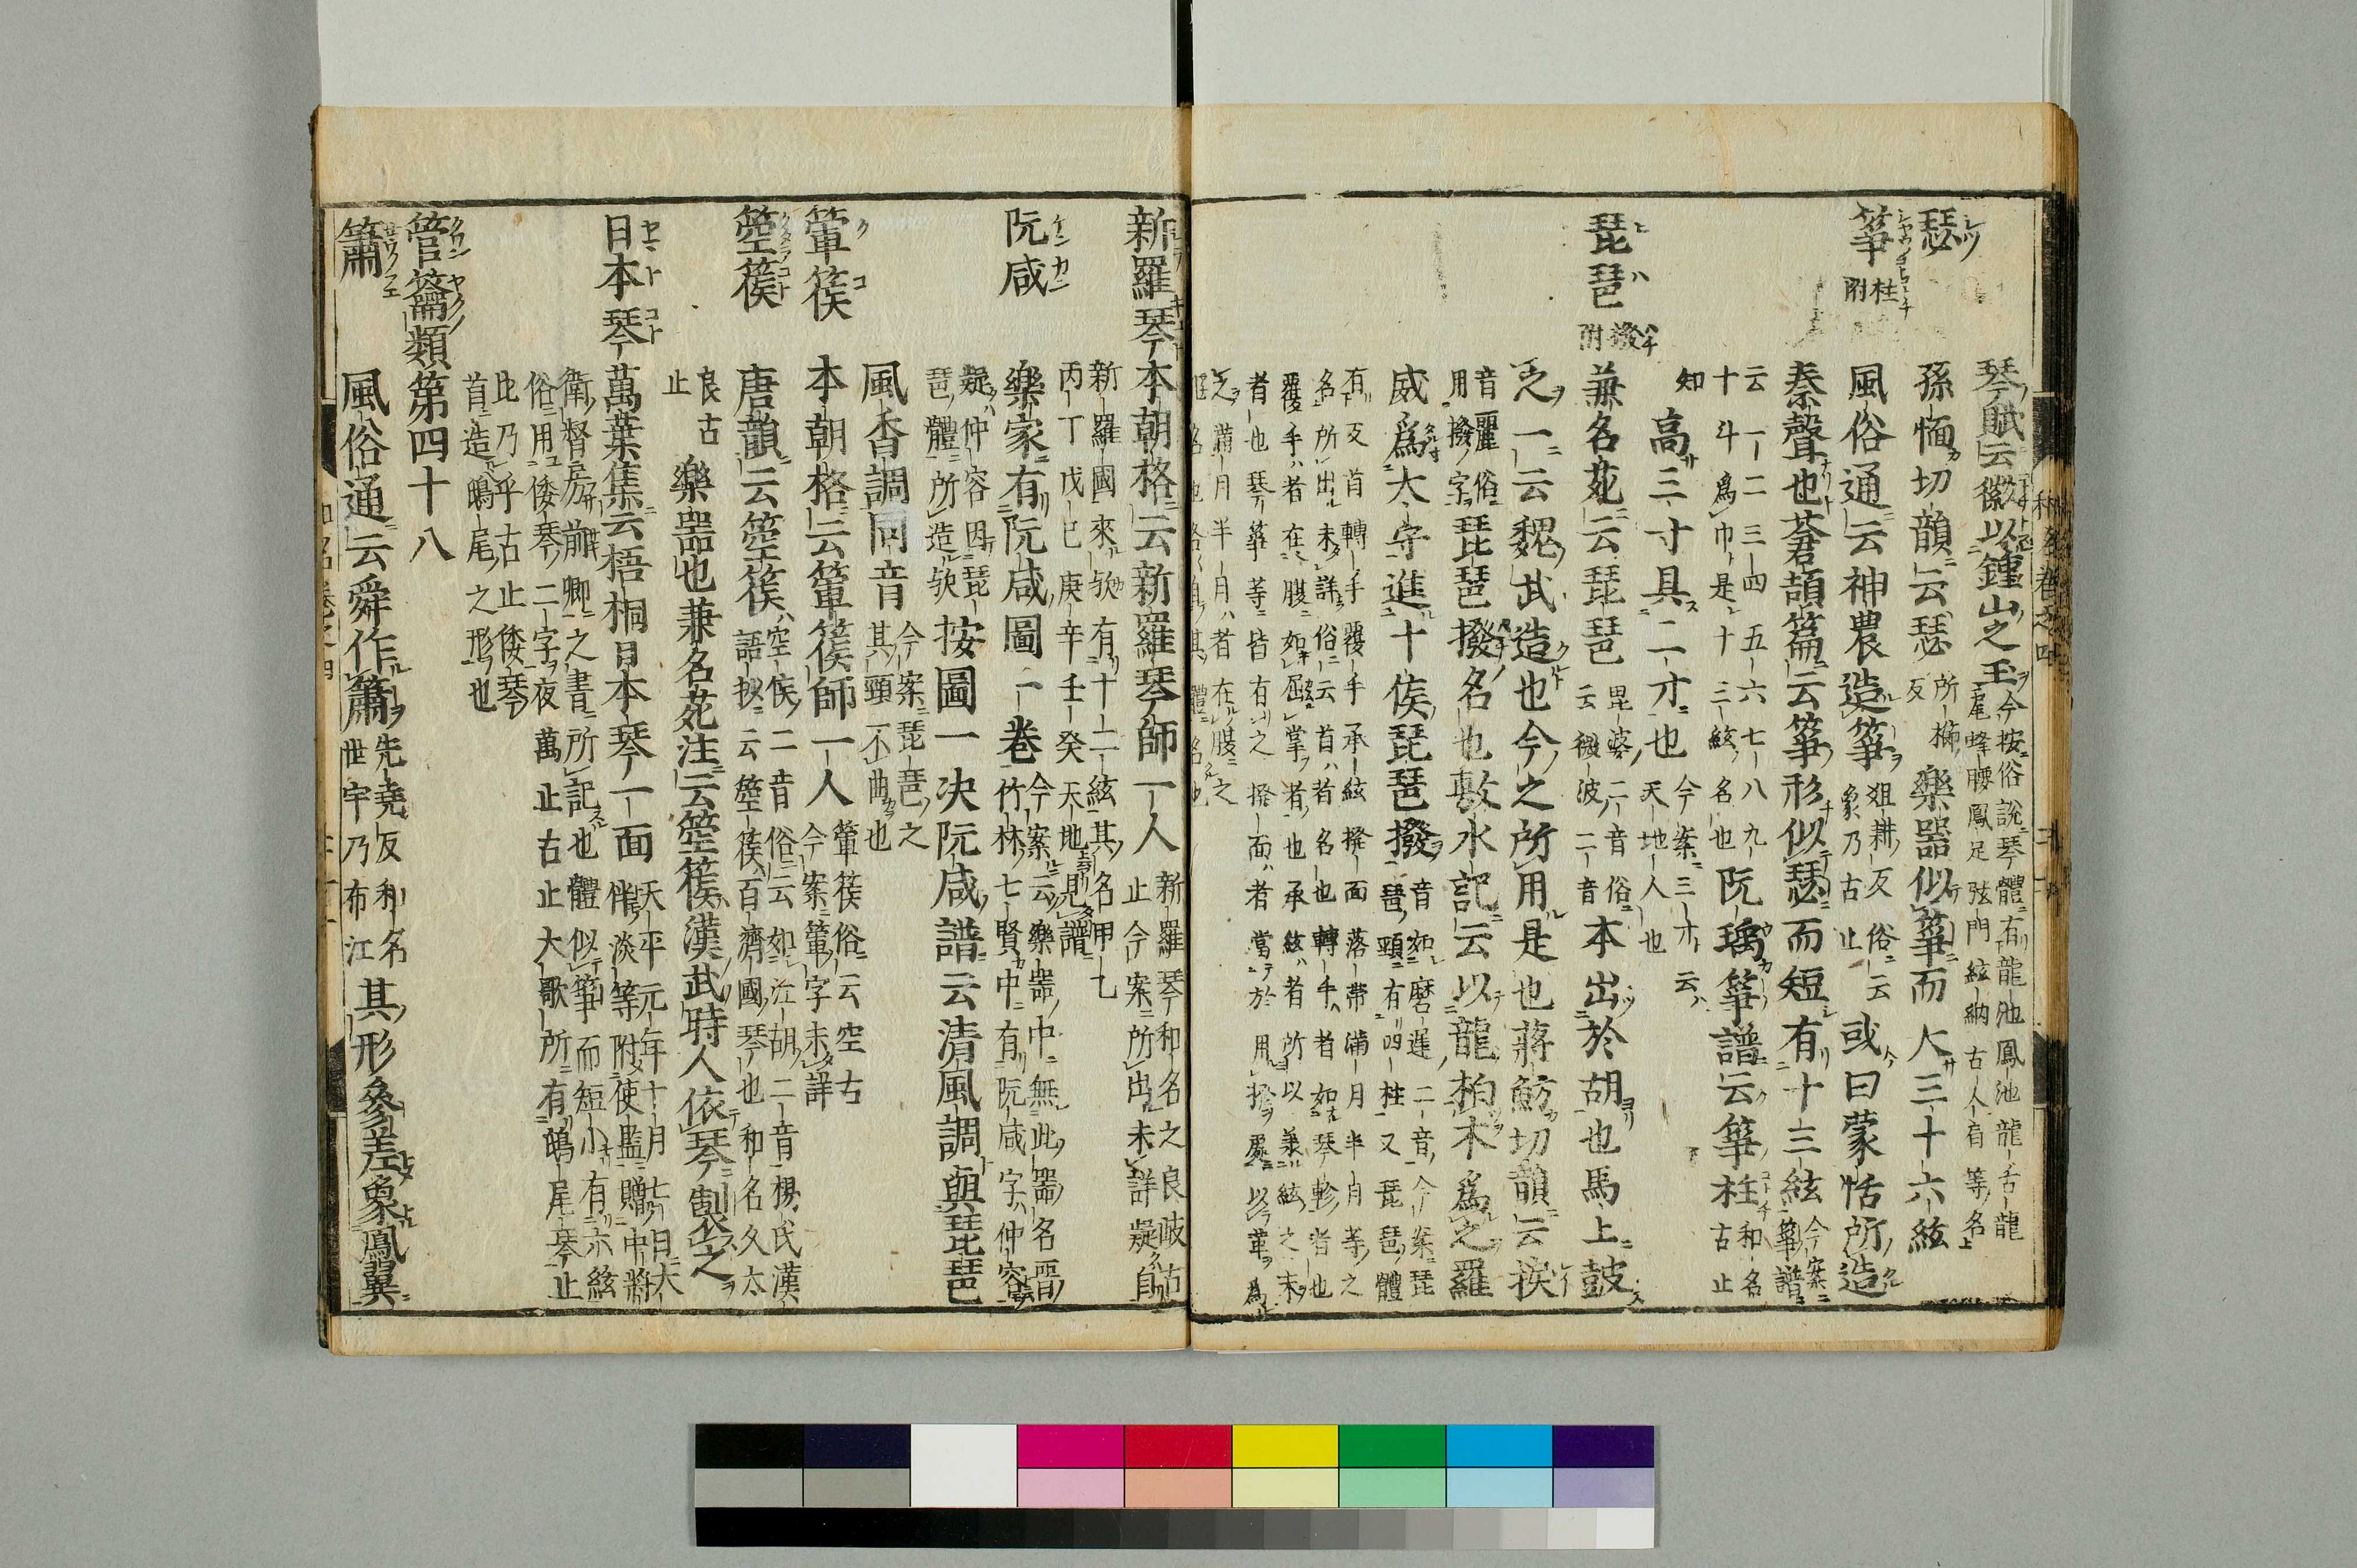 琴賦云徽以鍾山之玉 今按俗說琴體有龍池鳳池龍舌龍
尾蜂腰鳳足弦門絃納古人有等名
瑟 孫愐切韻云瑟 所櫛反 樂器似箏而大三十六絃
箏 柱附 風俗通云神農造箏 俎耕反俗云象乃古止 或曰蒙恬所造
秦聲也蒼頡篇云箏形似瑟而短有十三絃 今案箏譜
云一二三四五六七八九十斗爲巾是十三絃名也 阮瑀箏譜云箏柱 和名古止知
高三寸具二才也 今案三才云天地人也
琵琶 撥附 兼名苑云琵琶 毘婆二音俗云微波二音 本出於胡也馬上鼓
之一云魏武造也今之所用是也蔣魴切韻云捩
音麗俗用撥字 琵琶撥名也敷水記云以龍柏木爲之羅
威爲大守進十俟琵琶撥 音如磨蓬二音今案琵琶頸有四柱又琵琶體
有反首轉手覆手承絃撥面落帶滿月半月等之
名所出未詳俗云首者名也轉手者如琴軫者也
覆手者在腹如屈掌者也承絃者所以兼絃之末
者也琴箏等皆有之撥面者當於用撥處以革爲
之滿月半月者在腹之
新羅琴 本朝格云新羅琴師一人 新羅琴和名之良岐古止今案所出未詳疑自
新羅國來欤有十二絃其名甲乙
丙丁戊己庚辛壬癸天地見譜
阮咸 樂家有阮咸圖一卷 今案云樂器中無此器名晉竹林七賢中有阮咸字仲容
疑仲容因琵琶體所造欤 按圖一決阮咸譜云清風調與琵琶
風香調同音 今案琵琶之其頸不曲也
篳篌 本朝格云篳篌師一人 篳篌俗云空古今案篳字未詳
箜篌 唐韻云箜篌 空侯二音俗云如江胡二音楊氏漢語抄云箜篌百濟國琴也和名久太
良古止 樂器也兼名苑注云箜篌漢武時人依琴製之
日本琴 萬葉集云梧桐日本琴一面 天平元年十月七日大伴淡等附使監贈中將
衛督房前卿之書所記也體似箏而短小有六絃
俗用倭琴二字夜萬止古止大歌所有鵄尾琴止
比乃乎古止倭琴
首造鵄尾之形也
管籥類第四十八
簫 風俗通云舜作簫 先堯反和名世宇乃布江 其形參差象鳳翼